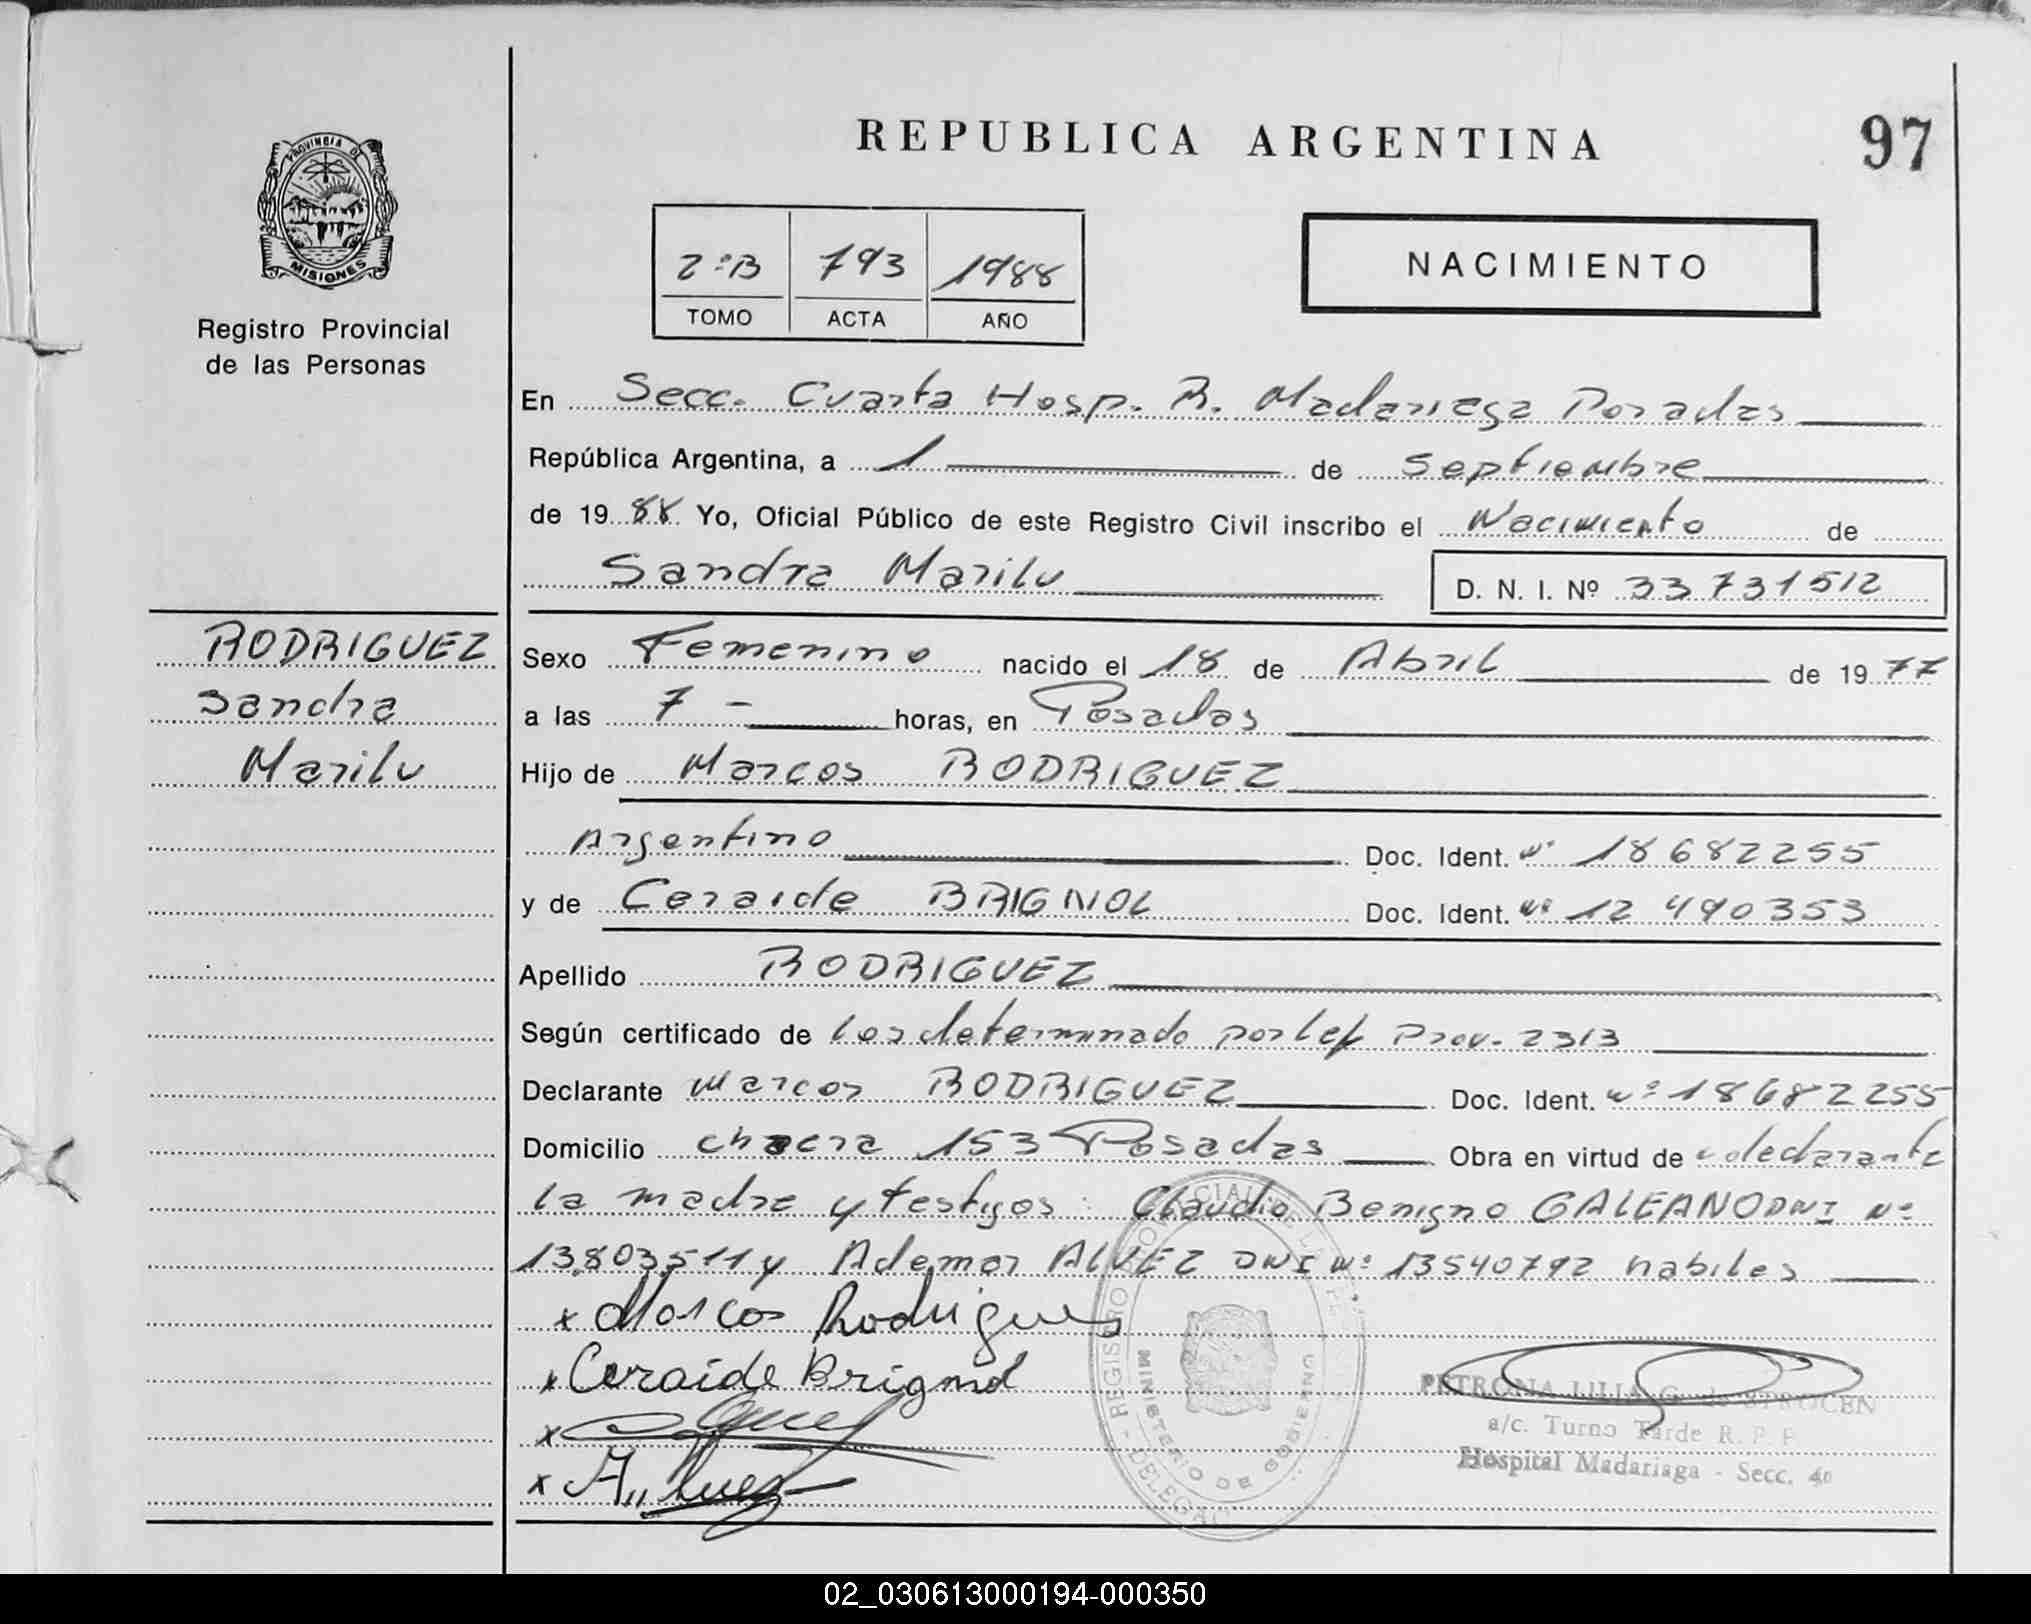 REPUBLICA ARGENTINA
97
PROVINCIA DE
MISIONES
Registro Provincial
de las Personas
2ºB 793 1988
TOMO ACTA AÑO
NACIMIENTO
En Secc. Cuarta Hosp. R. Madariaga Posadas
República Argentina, a 1 de Septiembre
de 1988 Yo, Oficial Público de este Registro Civil inscribo el Nacimiento de
Sandra Marilu D. N. I. Nº 33731512
RODRIGUEZ
Sandra
Marilu
Sexo Femenino nacido el 18 de Abril de 1977
a las 7 - horas, en Posadas
Hijo de Marcos RODRIGUEZ
Argentino Doc. Ident. Nº 18682255
y de Ceraide BRIGNOL Doc. Ident. Nº 12490353
Apellido RODRIGUEZ
Según certificado de lo determinado por Ley Prov. 2313
Declarante Marcos RODRIGUEZ Doc. Ident. Nº 18682255
Domicilio chacra 153 Posadas Obra en virtud de declarante
la madre y testigos: Claudio Benigno GALEANO DNI Nº
13.803511 y Ademar ALVEZ DNI Nº 13540792 habiles
x Marcos Rodrigues
x Ceraide Brignol
x
x A. Alvez
REGISTRO PROVINCIAL DE LAS
MINISTERIO DE GOBIERNO
PETRONA LILIA G. de SPROCEN
a/c. Turno Tarde R. P. P.
Hospital Madariaga - Secc. 4º
02_030613000194-000350